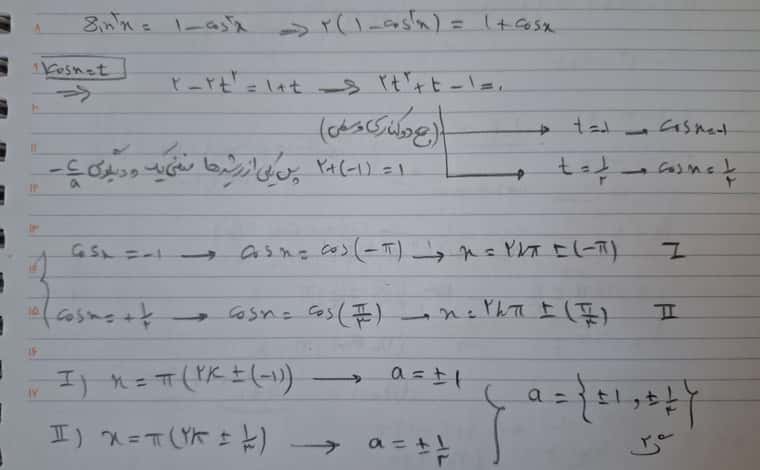 Sin²x = 1 - cos²x ⇒ ۲(1 - cos²x) = 1 + cosx
cosx = t ⇒ ۲ - ۲t² = 1 + t → ۲t² + t - 1 = ۰
t = -1 → cosx = -1
پس یکی از ریشه‌ها منفی یک و دیگری -c/a ۲ + (-1) = 1
t = 1/۲ → cosx = 1/۲
cosx = -1 → cosx = cos(-π) → x = ۲kπ ± (-π) I
cosx = +1/۲ → cosx = cos(π/۳) → x = ۲kπ ± (π/۳) II
I) x = π(۲k ± (-1)) → a = ±1
II) x = π(۲k ± 1/۳) → a = ±1/۳
a = {±1, ±1/۳}